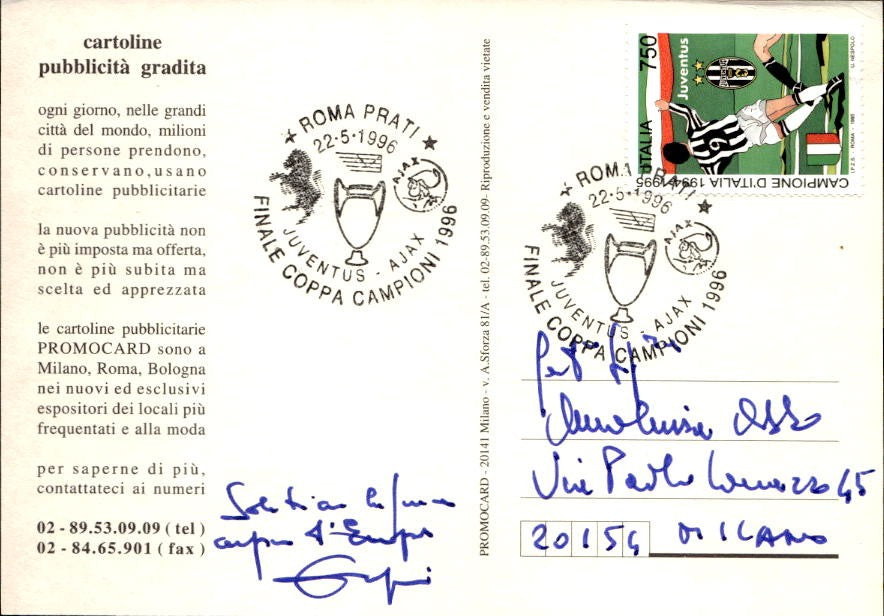 cartoline
pubblicità gradita
ogni giorno, nelle grandi
città del mondo, milioni
di persone prendono,
conservano, usano
cartoline pubblicitarie
la nuova pubblicità non
è più imposta ma offerta,
non è più subita ma
scelta ed apprezzata
le cartoline pubblicitarie
PROMOCARD sono a
Milano, Roma, Bologna
nei nuovi ed esclusivi
espositori dei locali più
frequentati e alla moda
per saperne di più,
contattateci ai numeri
02 - 89.53.09.09 ( tel )
02 - 84.65.901 ( fax )
ROMA PRATI
22-5-1996
AJAX
JUVENTUS - AJAX
FINALE COPPA CAMPIONI 1996
d'Europa
PROMOCARD - 20141 Milano - v. A.Sforza 81/A - tel. 02-89.53.09.09- Riproduzione e vendita vietate
750
Juventus
ITALIA
CAMPIONE D'ITALIA 1994-1995
I.P.Z.S. - ROMA - 1995
U. NESPOLO
6
ROMA PRATI
22-5-1996
AJAX
JUVENTUS - AJAX
FINALE COPPA CAMPIONI 1996
Via Paolo Lomazzo 45
20154 MILANO